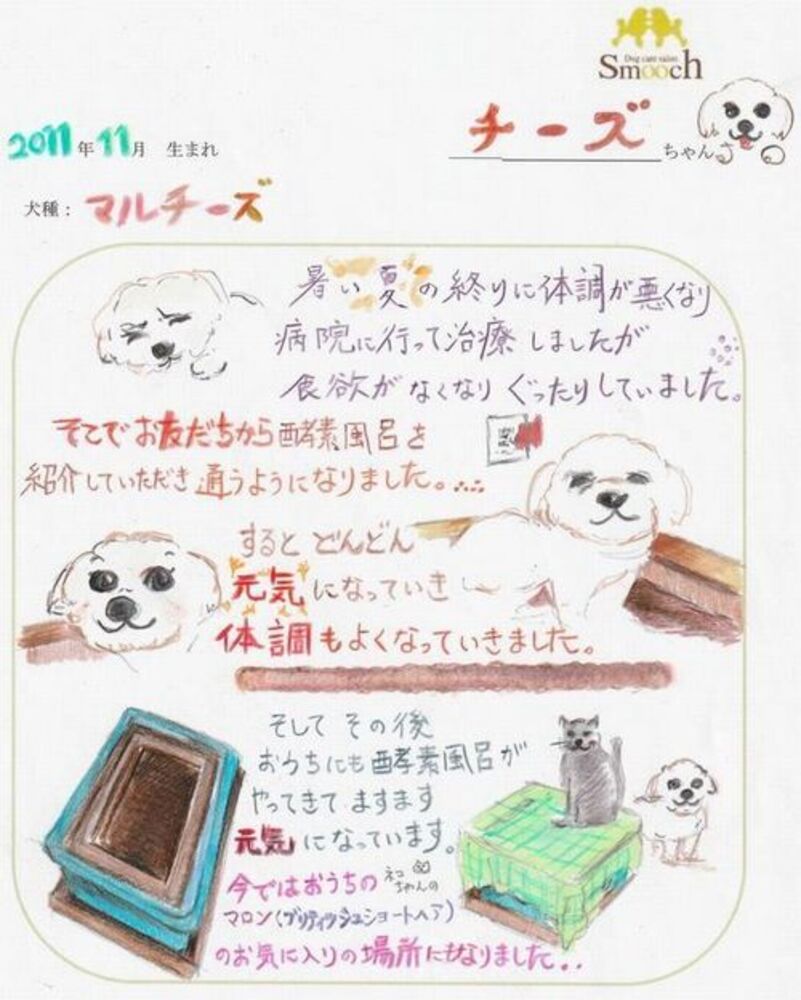 Dog care salon
Smooch
チーズちゃん
2011年11月 生まれ
犬種：マルチーズ
暑い夏の終りに体調が悪くなり
病院に行って治療しましたが
食欲がなくなりぐったりしていました。
そこでお友だちから酵素風呂を
紹介していただき通うようになりました。...
するとどんどん
元気になっていき
体調もよくなっていきました。
そしてその後
おうちにも酵素風呂が
やってきてますます
元気になっています。
今ではおうちのネコちゃんの
マロン(ブリティッシュショートヘア)
のお気に入りの場所にもなりました..